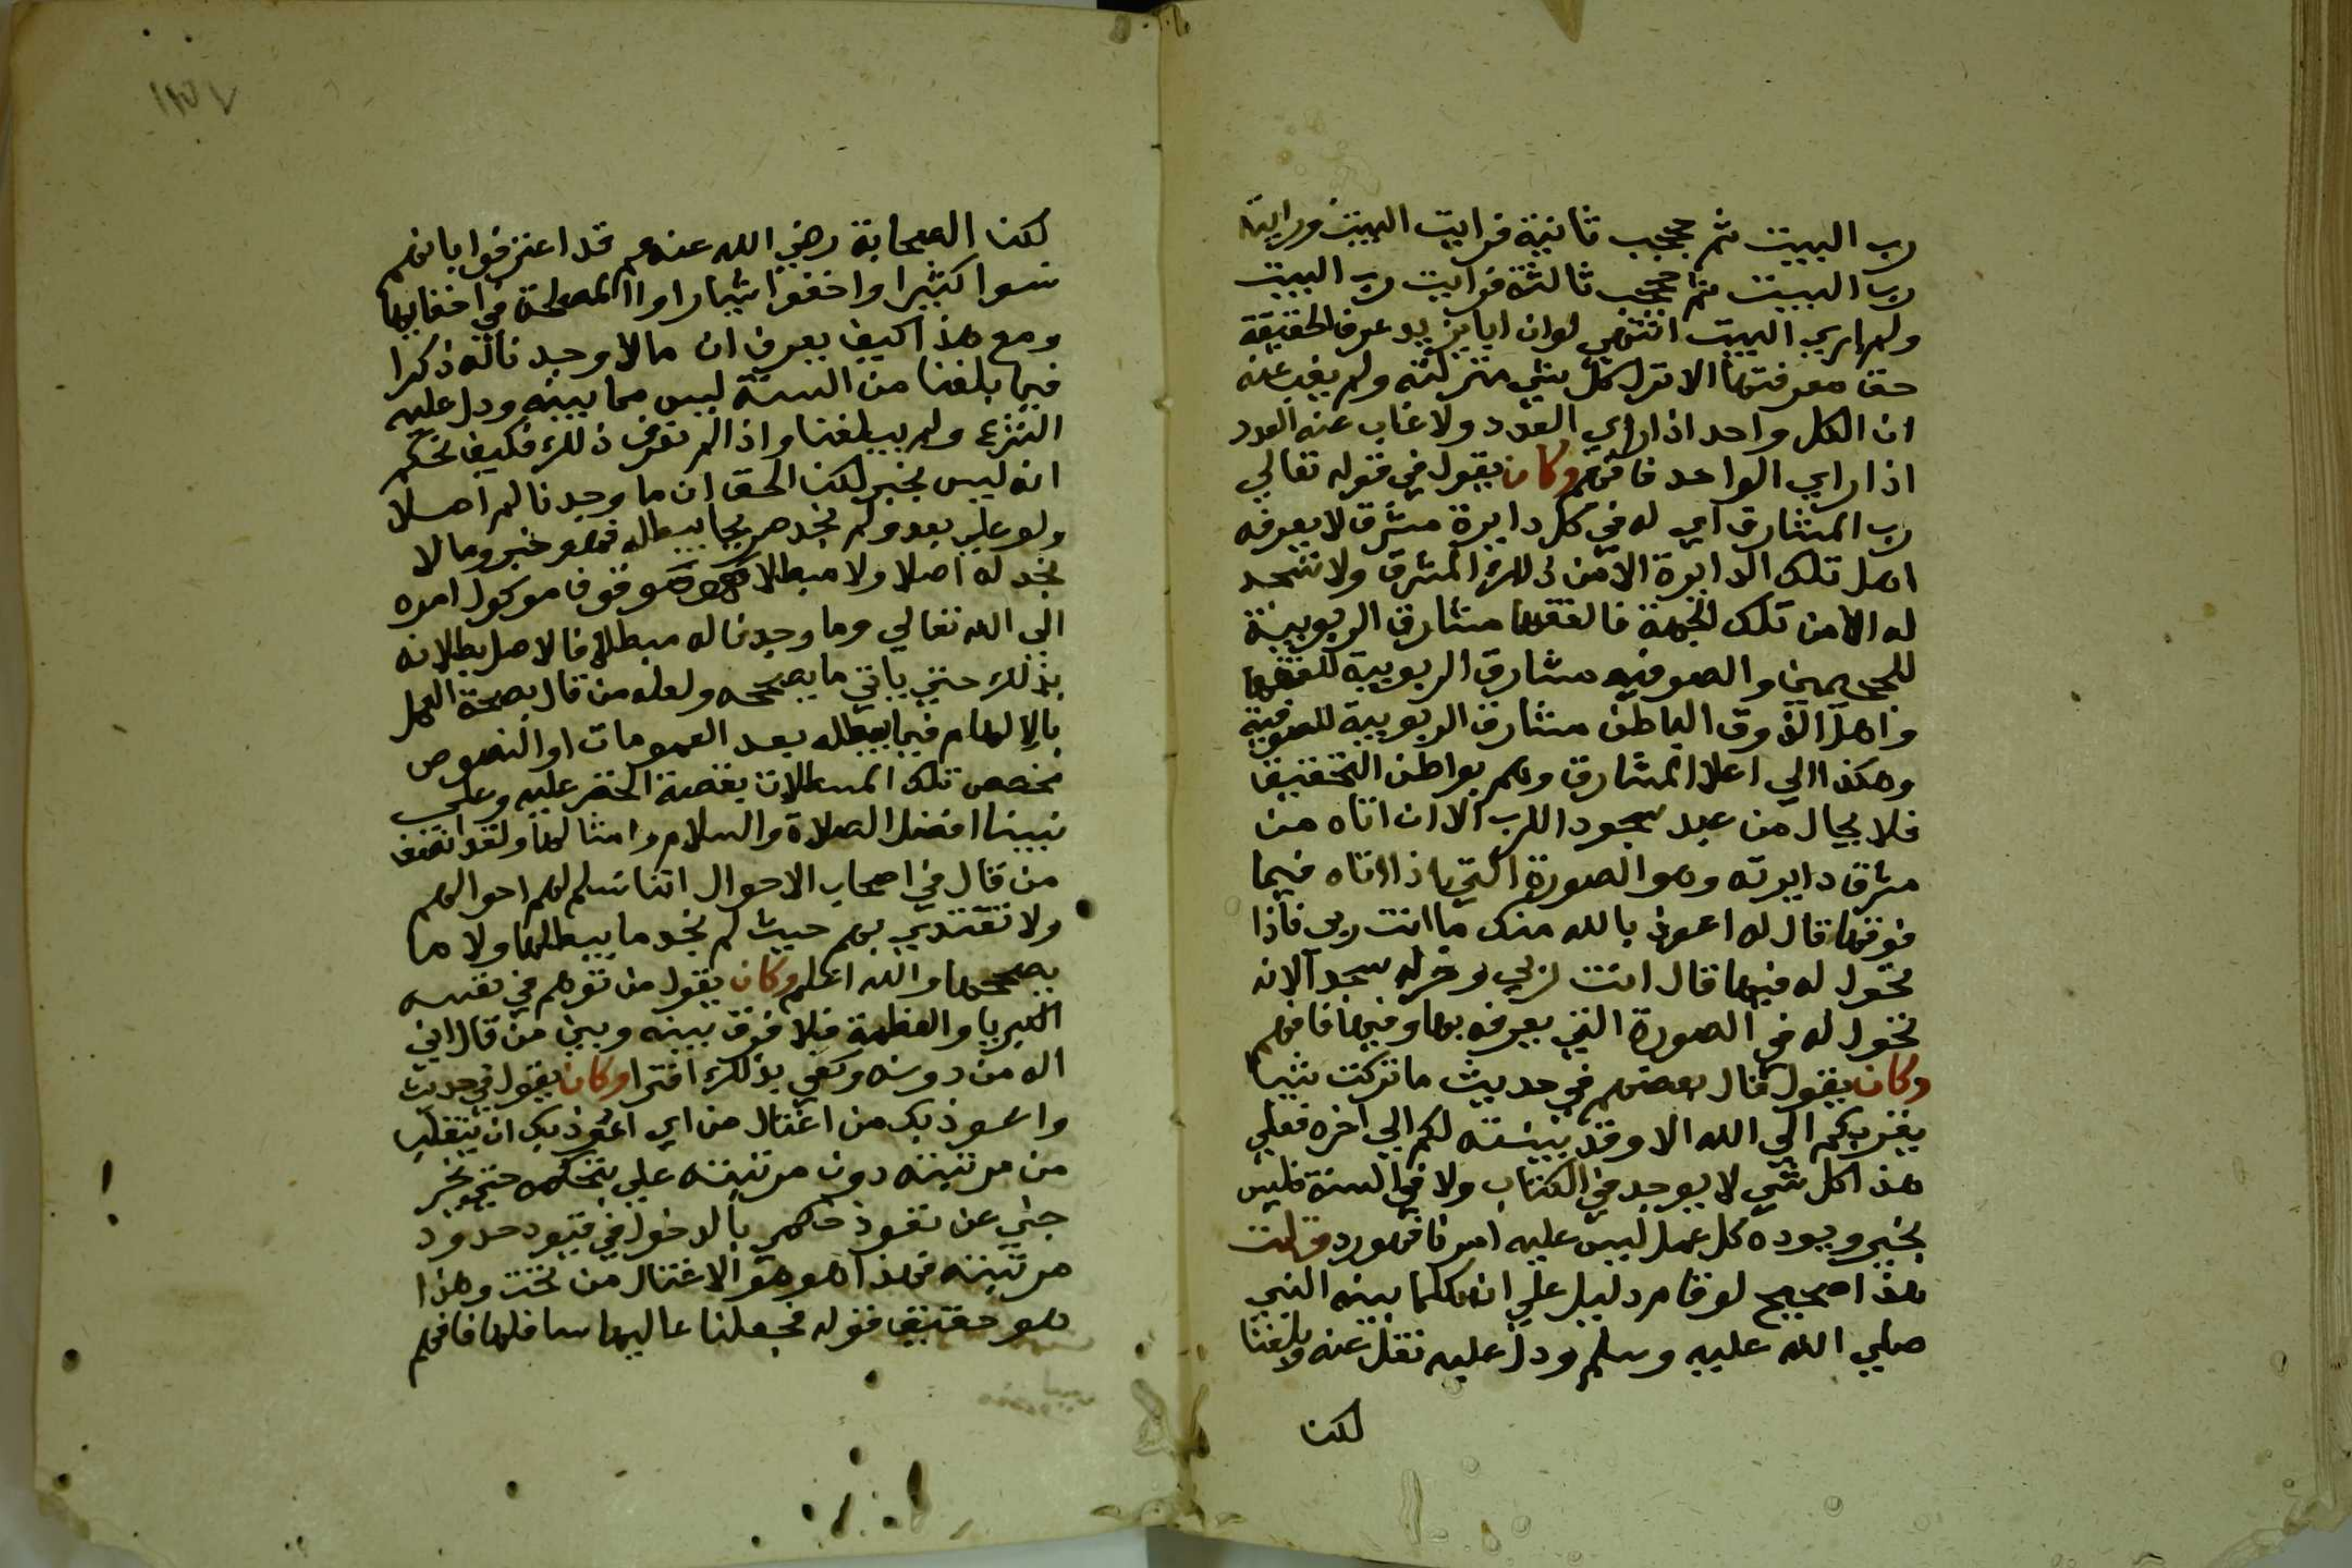 رب البيت ثم حججب ثانية فرايت البيت ورايت
رب البيت ثم حججب ثالثة فرايت رب البيت
ولم اري البيت انتهي لو ان ابا يزيد عرف الحقيقة
حق معرفتها الا ترك كل شي منزلته ولم يغب عنه
ان الكل واحد اذا راي العدد ولا غاب عنه العدد
اذا راي الواحد فافهم وكان يقول في قوله تعالي
رب المشارق اي له في كل دايرة مشرق لا يعرفه
اهل تلك الدايرة الا من ذلك المشرق ولا تسجد
له الا من تلك الجهة فالفقها مشارق الربوبية
للمحجمين والصوفيه مشارق الربوبية للفقها
واهل الذوق الباطن مشارق الربوبية للصوفية
وهكذا الي اعلا المشارق وهم بواطن التحقيق
فلا يحال من عبد سجود اللرب الا ان اتاه من
مشرق دايرته وهو الصورة التي اذا اتاه فيما
فوقها قال له اعوذ بالله منك ما انت ربي فاذا
تحول له فيها قال انت ربي وخر له سجدا لانه
تحول له في الصورة التي يعرفه بها وفيها فافهم
وكان يقول قال بعضهم في حديث ما تركت شيا
يقربكم الي الله الا وقد بينته لكم الي اخره فعلي
هذا كل شي لا يوجد في الكتاب ولا في السنة فليس
بخير ويوده كل عمل ليس عليه امرنا فهو رد قلت
هذا صحيح لو قام دليل علي ان كلما بينه النبي
صلي الله عليه وسلم ودل عليه نقل عنه وبلغنا
لكن
لكن الصحابة رضي الله عنهم قد اعترفوا بانهم
نسوا كثيرا واخفوا شيا راوا المصلحة في اخفايها
ومع هذا كيف يعرف ان ما لا وجدنا له ذكرا
فيما بلغنا من السنة ليس مما بينه ودل عليه
الشرع ولم يبلغنا واذا لم نعرف ذلك فكيف نحكم
انه ليس بخير لكن الحق ان ما وجدنا لم اصلا
ولو علي بعد ولم نجد صريحا يبطله فهو خير وما لا
نجد له اصلا ولا مبطلا موقوفا موكول امره
الي الله تعالي وما وجدنا له مبطلا فالاصل بطلانه
بذلك حتي ياتي ما يصححه ولعله من قال بصحة العمل
بالالهام فيما يبطله بعد العمومات او النصوص
نخصص تلك المبطلات بقصة الخضر عليه وعلي
نبينا افضل الصلاة والسلام وامثالها ولقد انصف
من قال في اصحاب الاحوال اننا نسلم لهم احوالهم
ولا نقتدي بهم حيث لم نجد ما يبطلها ولا ما
يصححها والله اعلم وكان يقول من توهم في نفسه
الكبريا والعظمة فلا فرق بينه وبين من قال اني
اله من دونه وكفي بذلك افترا وكان يقول في حديث
واعوذ بك من اغتال من اي اعوذ بك ان يتغلب
من مرتبته دون مرتبته علي بتحكمه حتي
جني عن نفوذ حكمي بالدخول في قيود حدود
مرتبته فهذا هو هو الاغتال من تحت وهذا
هو حقيقة قوله فجعلنا عاليها سافلها فافهم